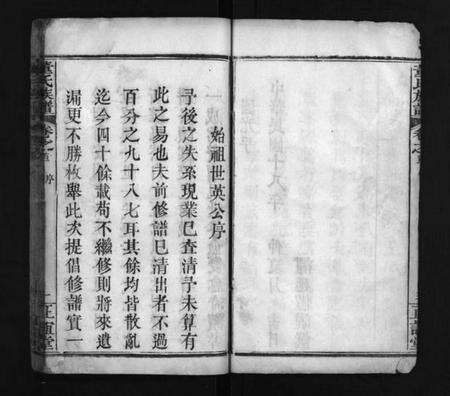 始祖世英公序
予後之失系現業已查清予未算有
此之易也夫前修譜已清出者不過
百分之九十八七耳其餘均皆散亂
迄今四十餘載苟不繼修則將來遺
漏更不勝枚舉此次提倡修譜實一
董氏族譜
卷之首
序
正誼堂